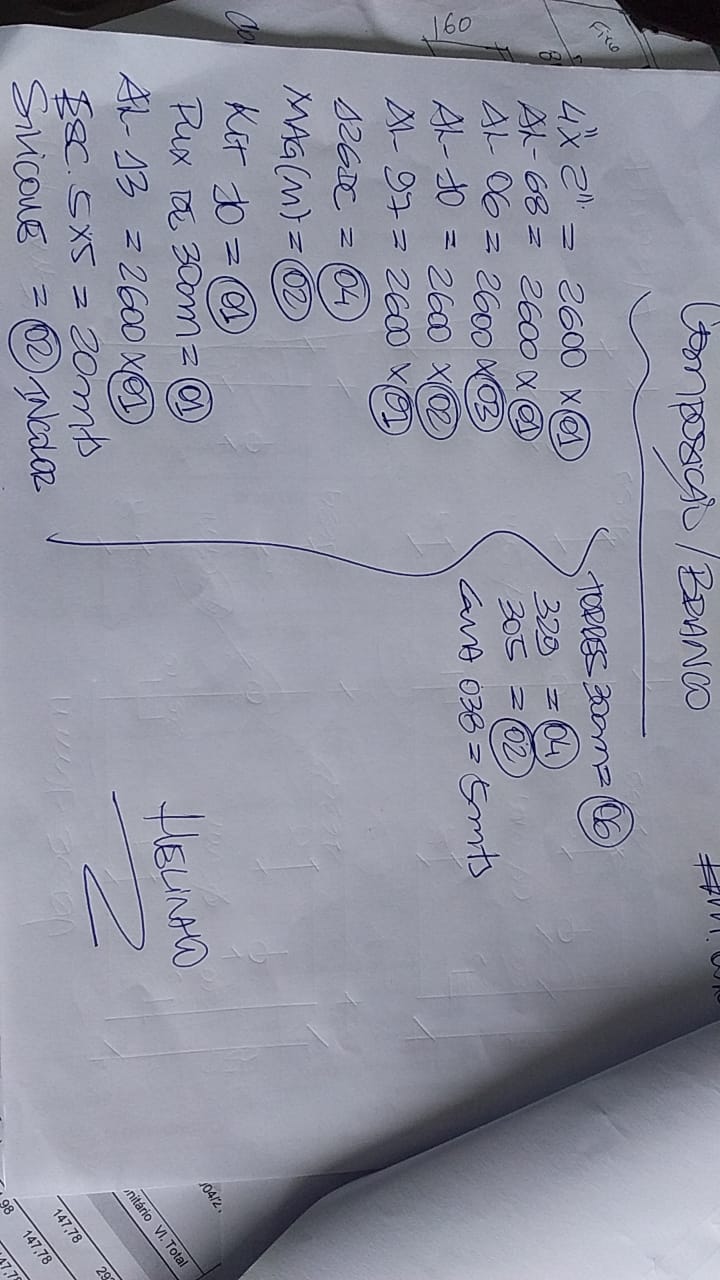 Composição/BRANCO
4"x2" = 2600 x 01
AL-68 = 2600 x 01
AL 06 = 2600 x 03
AL-10 = 2600 x 02
AL 97 = 2600 x 01
= 04
MAG(M) = 02
Kit 10 = 01
Pux de 300m = 01
AL-13 = 2600 x 01
ESC. 5x5 = 20mts
Silicone = 02 Incolor
TORRES 300m = 06
320 = 04
305 = 02
CANA 038 = 5mts
HELINALDO
160
Fixo
04/2
nitário Vl. Total
147,78
147,78